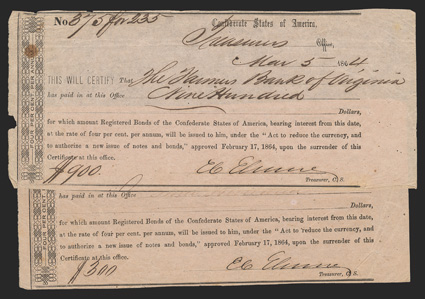 No. 375 for 235
Confederate States of America,
Treasurers Office,
Mar 5 1864
THIS WILL CERTIFY That The Farmers Bank of Virginia
has paid in at this Office Nine Hundred
Dollars,
for which amount Registered Bonds of the Confederate States of America, bearing interest from this date,
at the rate of four per cent. per annum, will be issued to him, under the "Act to reduce the currency, and
to authorize a new issue of notes and bonds," approved February 17, 1864, upon the surrender of this
Certificate at this office.
$900 E C Elmore
Treasurer, C. S.
has paid in at this Office
Dollars,
for which amount Registered Bonds of the Confederate States of America, bearing interest from this date,
at the rate of four per cent. per annum, will be issued to him, under the "Act to reduce the currency, and
to authorize a new issue of notes and bonds," approved February 17, 1864, upon the surrender of this
Certificate at this office.
$300 E C Elmore
Treasurer, C. S.